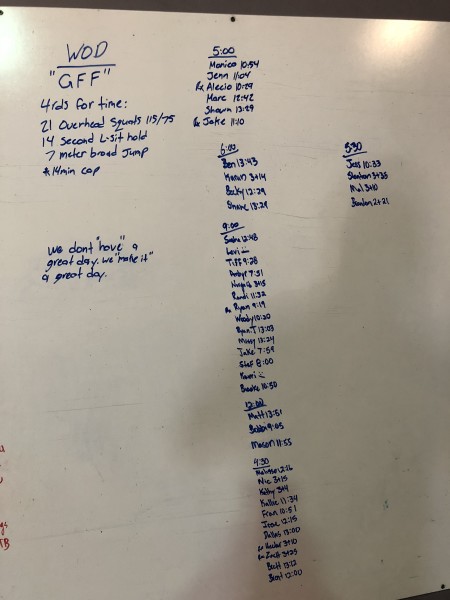 WOD
"GFF"
4rds for time:
21 Overhead Squats 115/75
14 Second L-sit hold
7 meter broad Jump
*14min cap
we dont "have" a
great day. we "make it"
a great day.
5:00
Monica 10:54
Jenn 11:04
Rx Alecio 10:29
Marc 12:42
Shawn 13:29
Rx Jake 11:10
6:00
Ben 13:43
Karan 3+14
Becky 12:29
13:29
530
Jess 10:33
3+35
Mal 3+10
2+21
9:00
12:48
Levi
Tiff 9:28
7:51
3+15
Randi 11:32
Rx Ryan 9:19
Woody 10:20
Ryan T 13:03
Missy 13:24
Jake 7:59
Stef 8:00
Brooke 10:50
12:00
Matt 13:51
9:05
Mason 11:55
4:30
Melissa 12:16
Nic 3+15
Kathy 3+4
Kallie 11:34
Fran 10:51
Jose 12:15
Dallas 13:00
Rx Hector 3+10
Rx Zach 3+25
Brett 13:12
Brent 12:00